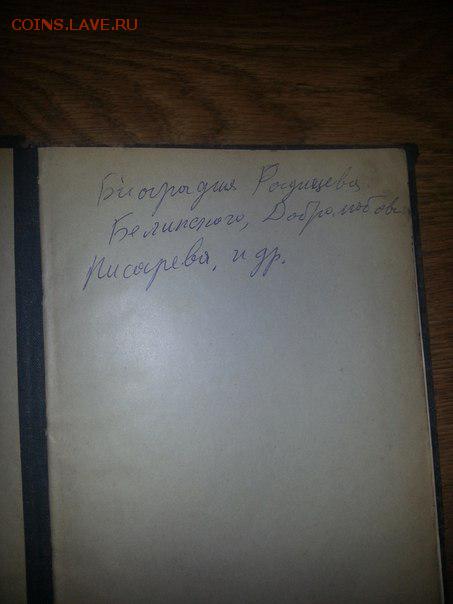 COINS.LAVE.RU
Биография Радищева
Белинского, Добролюбова
Писарева, и др.